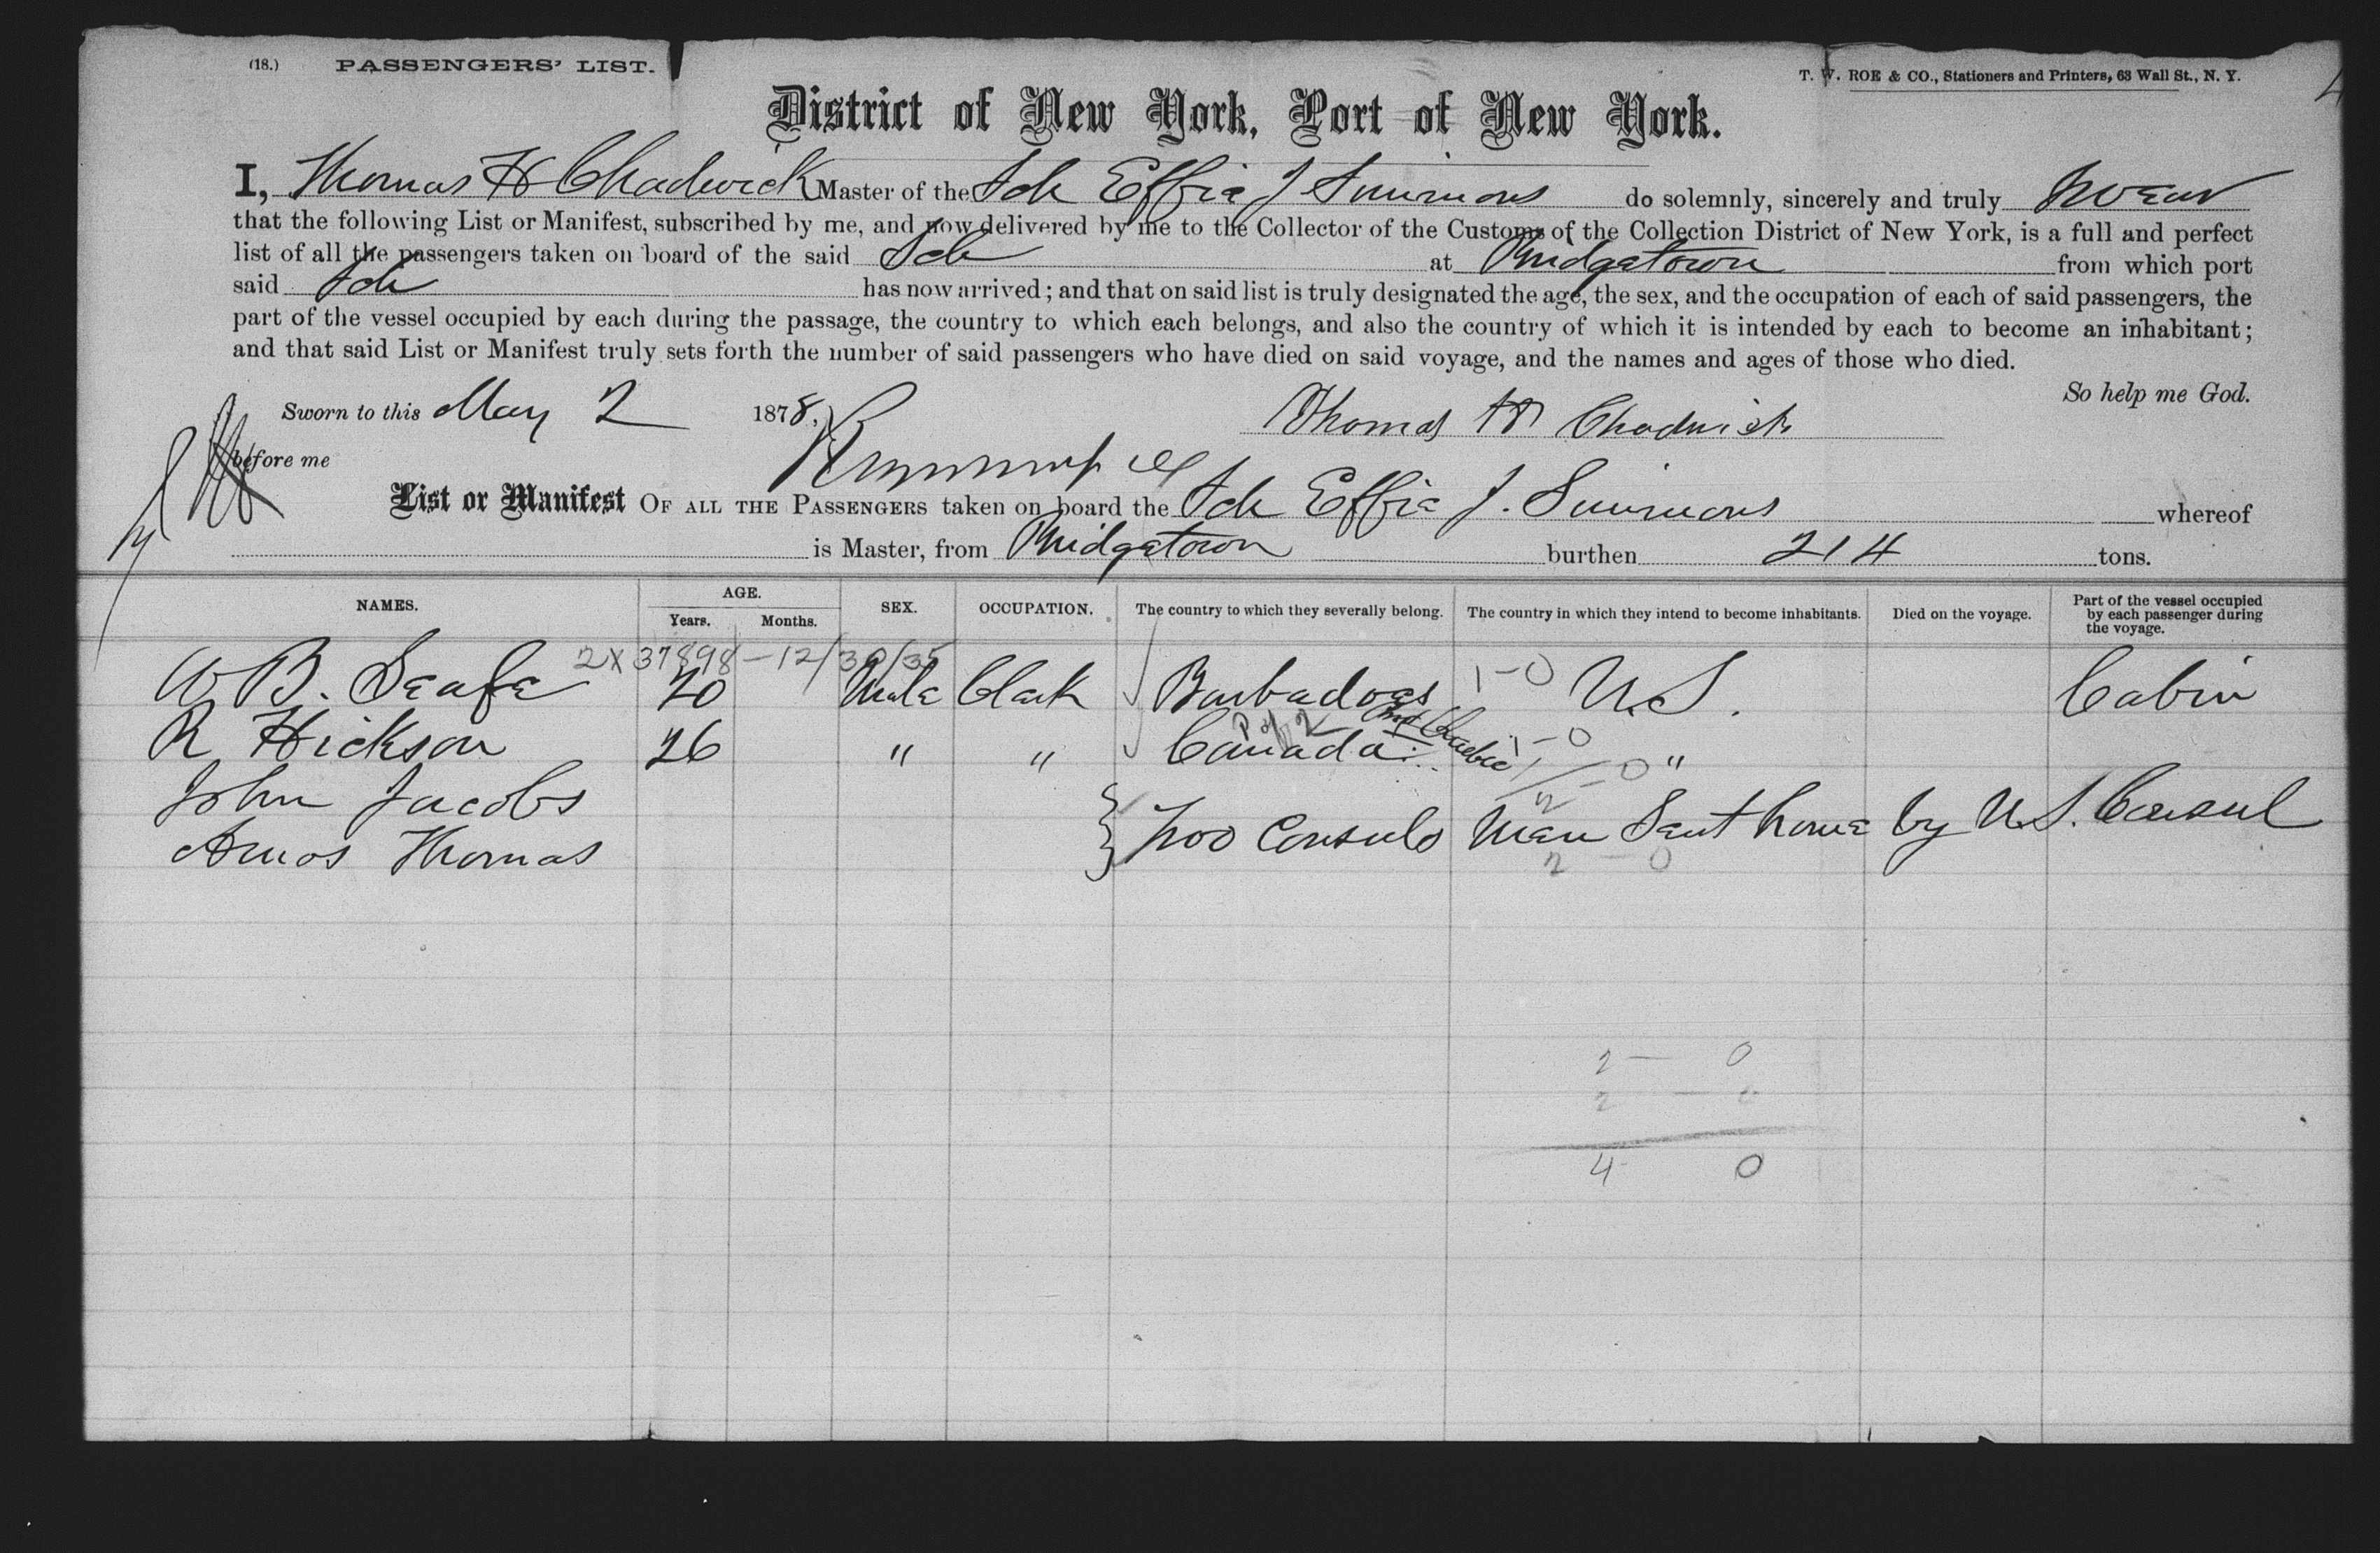 (18.) PASSENGERS' LIST.
T. W. ROE & CO., Stationers and Printers, 63 Wall St., N. Y.
4
District of New York, Port of New York.
I, Thomas H Chadwick Master of the Sch Effie J Simmons do solemnly, sincerely and truly swear
that the following List or Manifest, subscribed by me, and now delivered by me to the Collector of the Customs of the Collection District of New York, is a full and perfect
list of all the passengers taken on board of the said Sch at Bridgetown from which port
said Sch has now arrived; and that on said list is truly designated the age, the sex, and the occupation of each of said passengers, the
part of the vessel occupied by each during the passage, the country to which each belongs, and also the country of which it is intended by each to become an inhabitant;
and that said List or Manifest truly sets forth the number of said passengers who have died on said voyage, and the names and ages of those who died.
So help me God.
Sworn to this May 2 1878,
Thomas H Chadwick
before me
List or Manifest OF ALL THE PASSENGERS taken on board the Sch Effie J. Simmons whereof
is Master, from Bridgetown burthen 214 tons.
NAMES. AGE. Years. Months. SEX. OCCUPATION. The country to which they severally belong. The country in which they intend to become inhabitants. Died on the voyage. Part of the vessel occupied by each passenger during the voyage.
2x37898-12/30/35
W B. Seafe 20 Male Clerk Barbadoes 1-0 U.S. Cabin
R Hickson 26 " " Canada 1-0 "
John Jacobs
Amos Thomas
Two Consuls Men Sent home by U.S. Consul
2 - 0
2 - 0
2 - 0
4 0